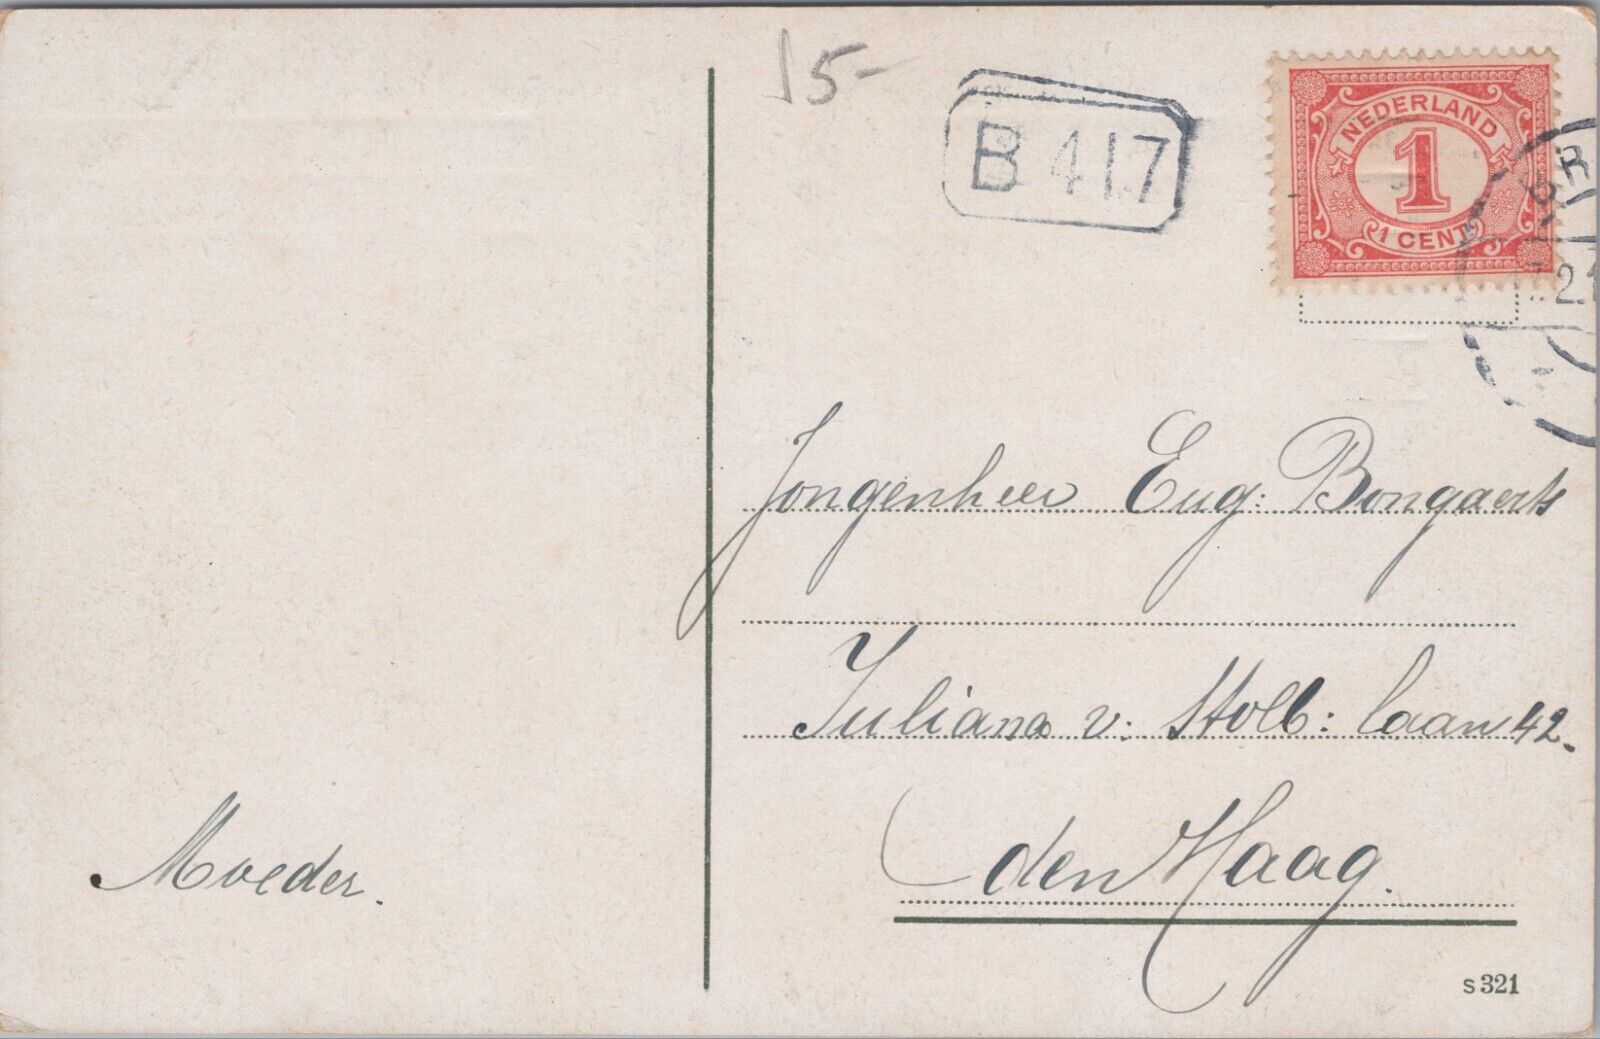 15-
B 417
NEDERLAND
1
1 CENT
Jongenheer Eug: Bongaerts
Juliana v: Stolb: laan 42.
den Haag.
Moeder.
s 321